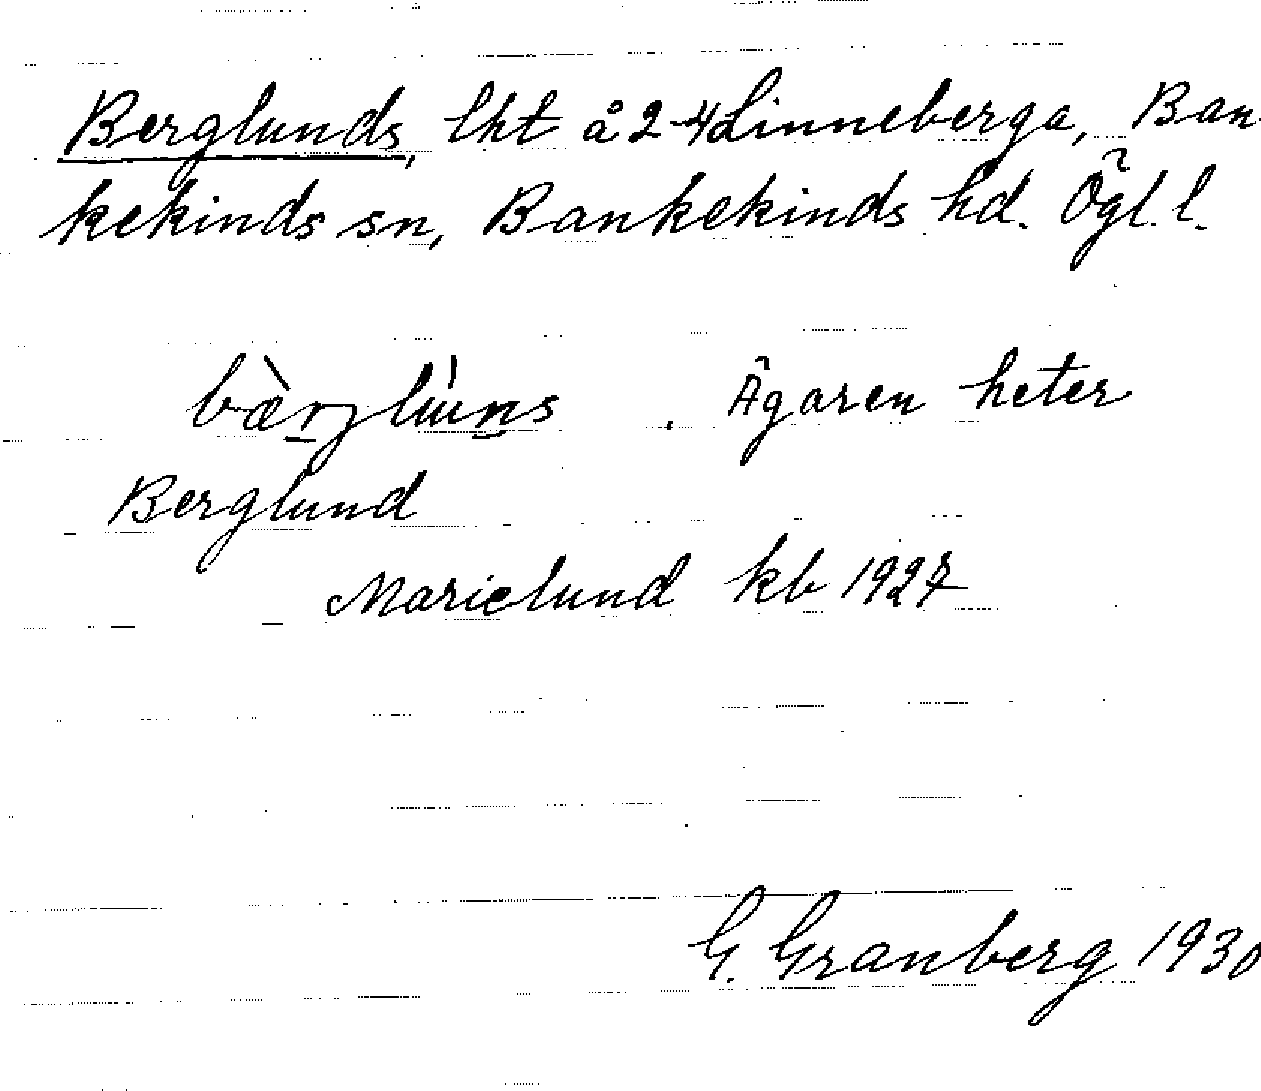 Berglunds, lht å 2-4 Linneberga, Ban
kekinds sn, Bankekinds hd. Ögl. l.
Ägaren heter
Berglund
Marielund kb 1927
G. Granberg 1930